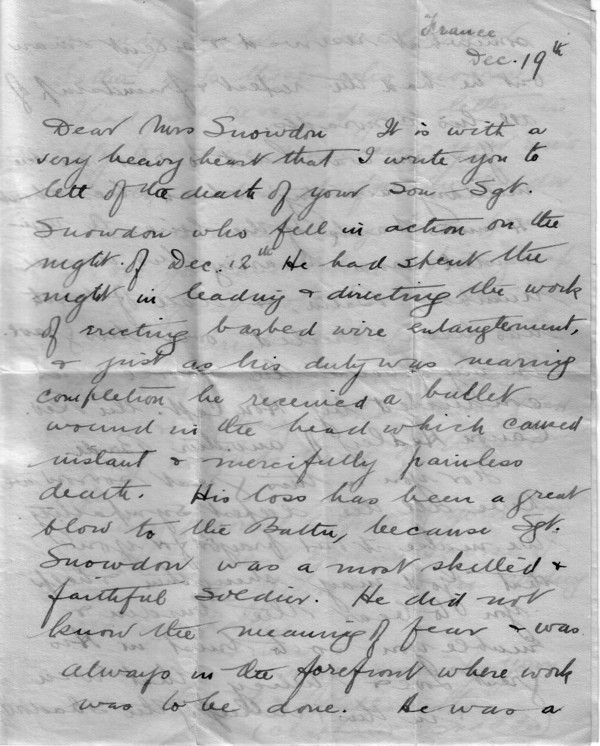 France
Dec. 19th
Dear Mrs Snowdon It is with a
very heavy heart that I write you to
tell of the death of your Son Sgt.
Snowdon who fell in action on the
night of Dec. 12th He had spent the
night in leading & directing the work
of erecting barbed wire entanglement,
& just as his duty was nearing
completion he received a bullet
wound in the head which caused
instant & mercifully painless
death. His loss has been a great
blow to the Battn, because Sgt.
Snowdon was a most skilled &
faithful soldier. He did not
know the meaning of fear & was
always in the forefront where work
was to be done. He was a